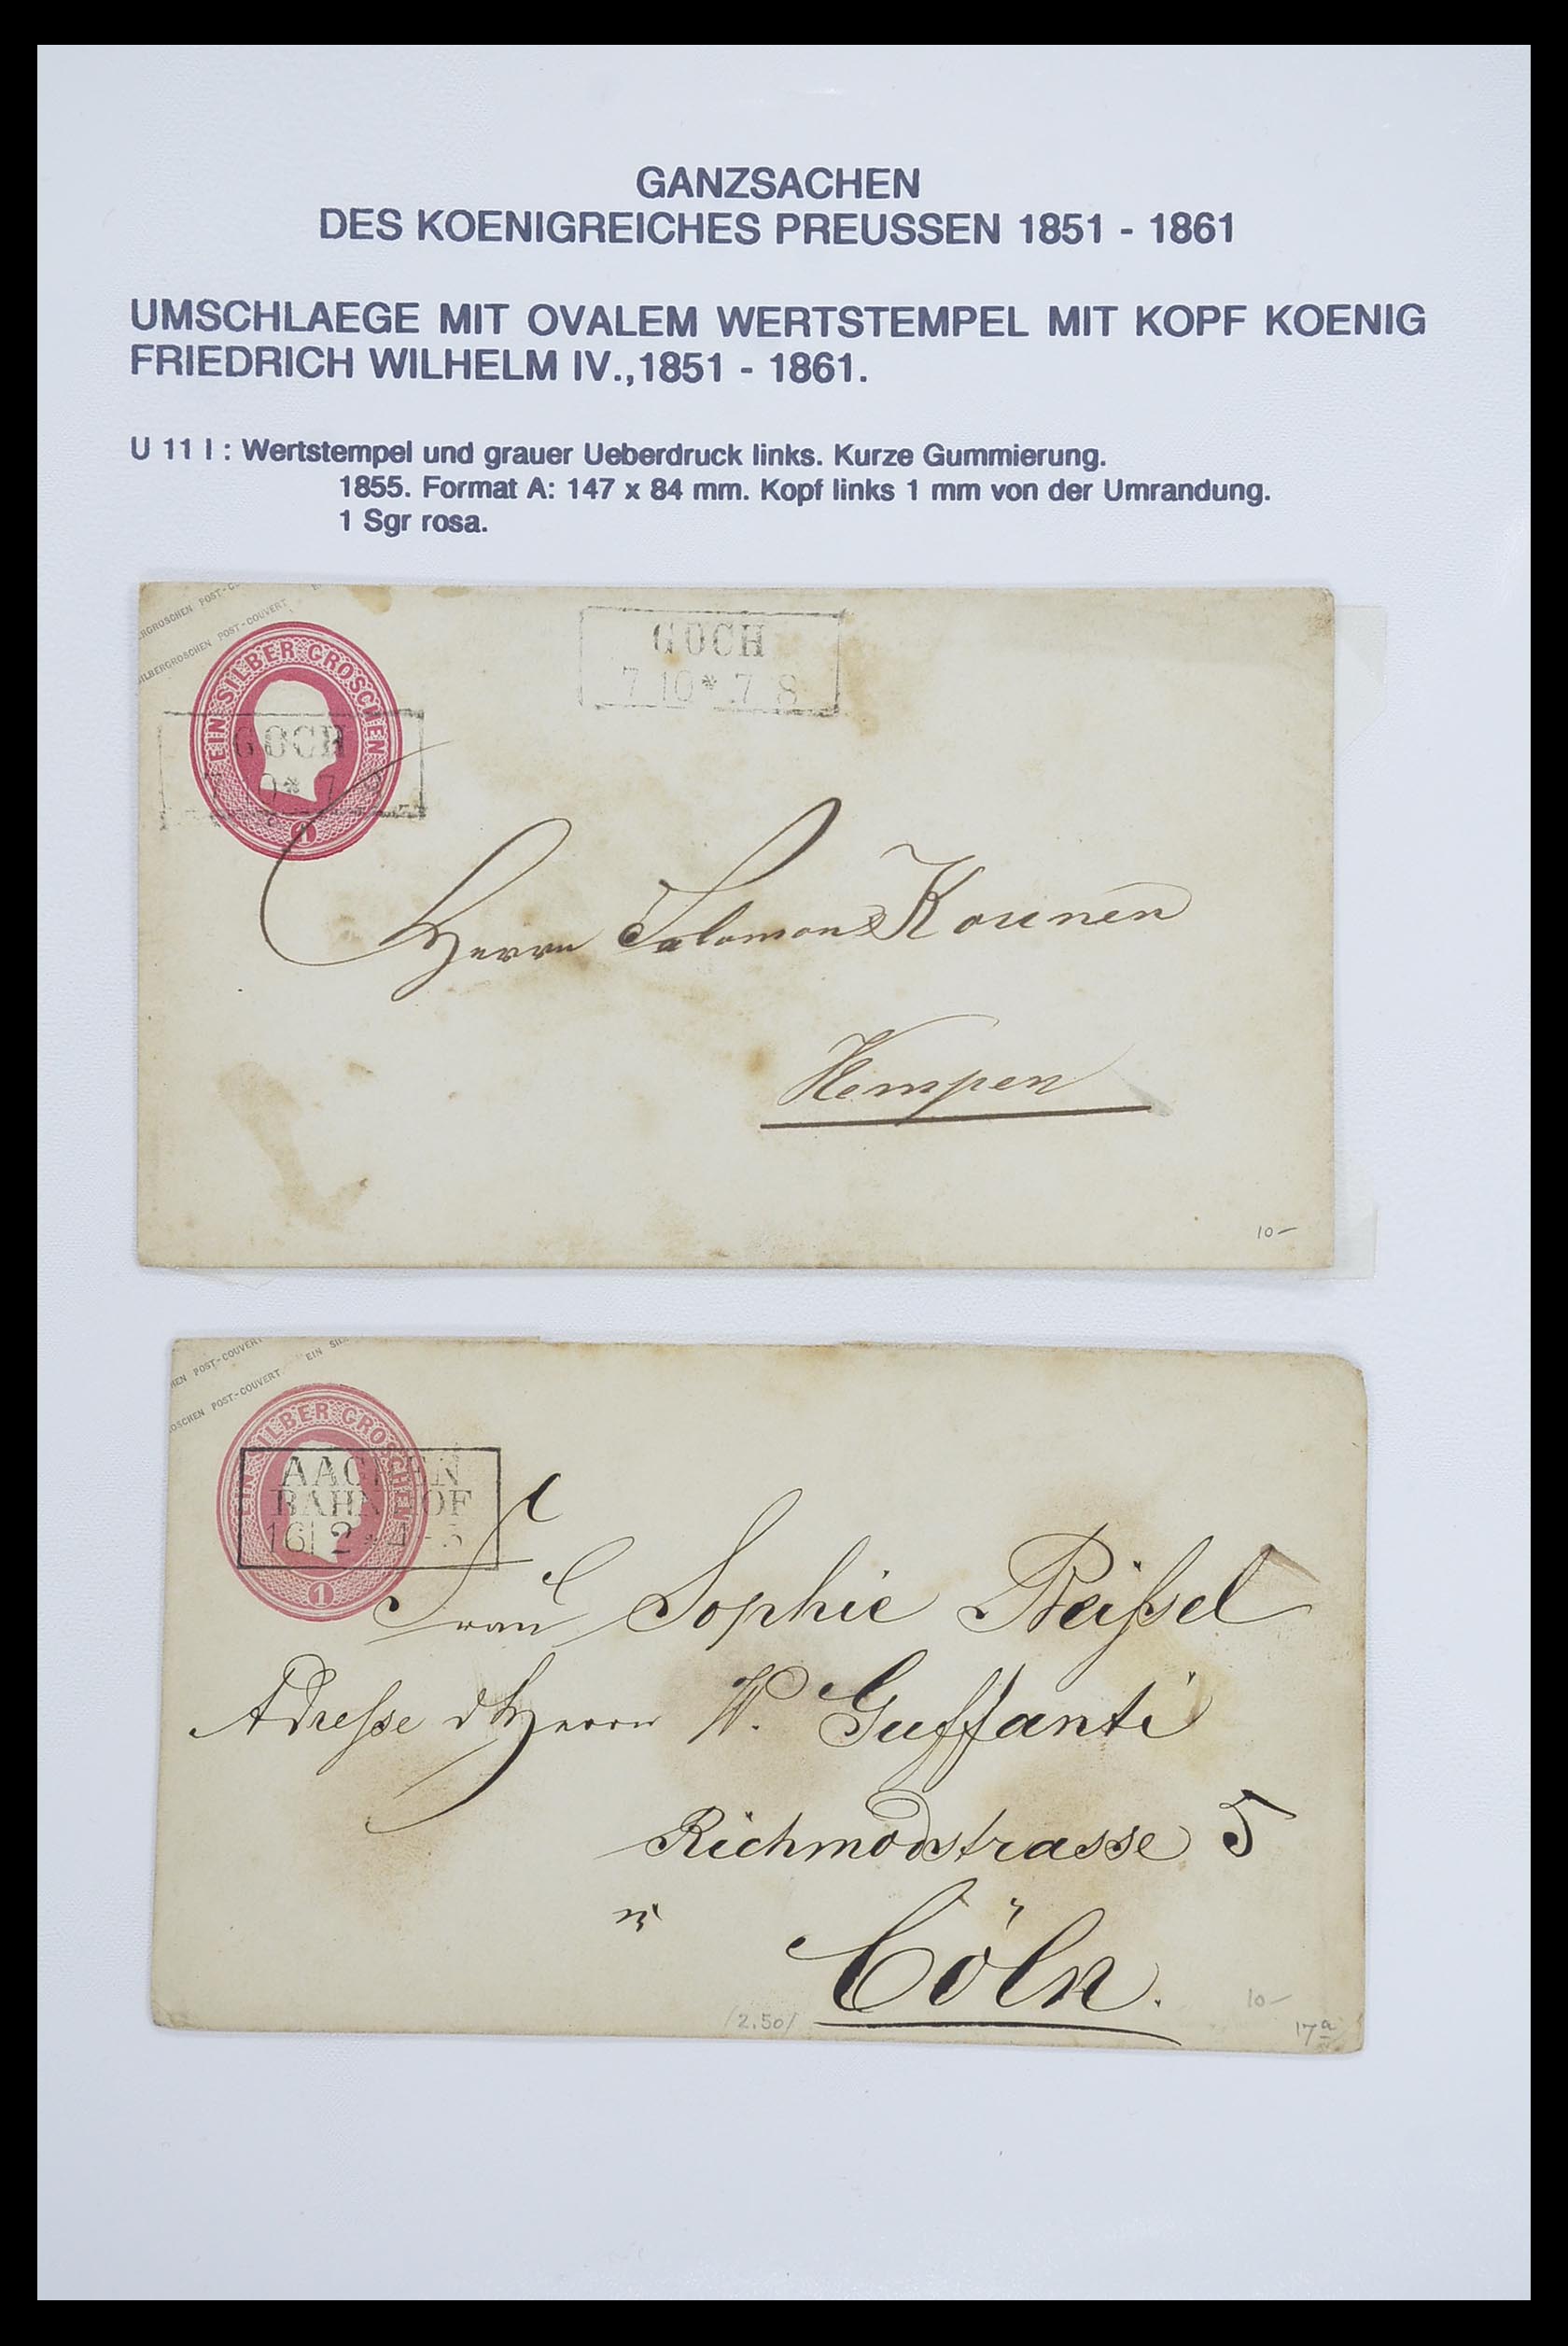 GANZSACHEN
DES KOENIGREICHES PREUSSEN 1851 - 1861
UMSCHLAEGE MIT OVALEM WERTSTEMPEL MIT KOPF KOENIG
FRIEDRICH WILHELM IV.,1851 - 1861.
U 11 I : Wertstempel und grauer Ueberdruck links. Kurze Gummierung.
1855. Format A: 147 x 84 mm. Kopf links 1 mm von der Umrandung.
1 Sgr rosa.
POST-COUVERT
SILBERGROSCHEN POST-COUVERT
EIN SILBER GROSCHEN
1
GOCH
7 10 * 7 8
GOCH
Herrn Salomon Kounen
Kempen
10-
POST-COUVERT EIN
POST-COUVERT
EIN SILBER GROSCHEN
1
AACHEN
BAHNHOF
16 2 * 4-5
Frau Sophie Peißel
Adresse d Herrn W. Guffanti
Richmodstrasse 5
in
Cöln.
10-
/2.50/
17a